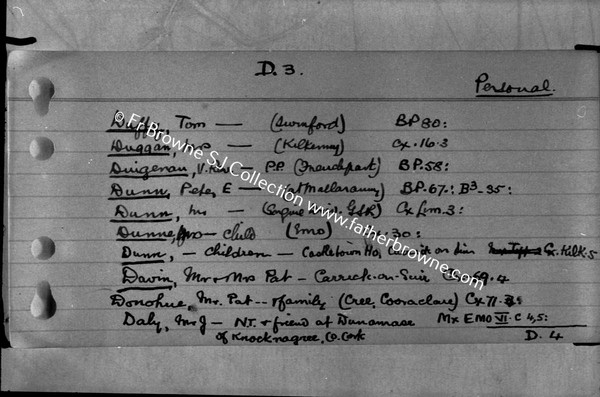 D. 3.
Personal.
Duffy, Tom — (Durnford) BP 80:
Duggan, Mrs — (Kilkenny) Cx. 16.3
Duigenan, V. Rev — P.P. (Frenchpark) BP. 58:
Dunn, Peter, E — (at Mallaranny) BP. 67: B3 - 35:
Dunn, Mr — (Engine Driv. GSR) Cx Lm. 3:
Dunne, Mrs - child (Emo) 30:
Dunn, — Children — Castletown Ho, Carrick on Suir Cx. Kilk. 5
Davin, Mr & Mrs Pat — Carrick-on-Suir 69. 4
Donohue, Mr. Pat -- & family (Cree, Cooraclare) Cx 71.
Daly, Mr J — N.T. & friend at Dunamase Mx EMO VI. C 4, 5:
of Knocknagree, Co. Cork D. 4
© Fr Browne SJ Collection www.fatherbrowne.com